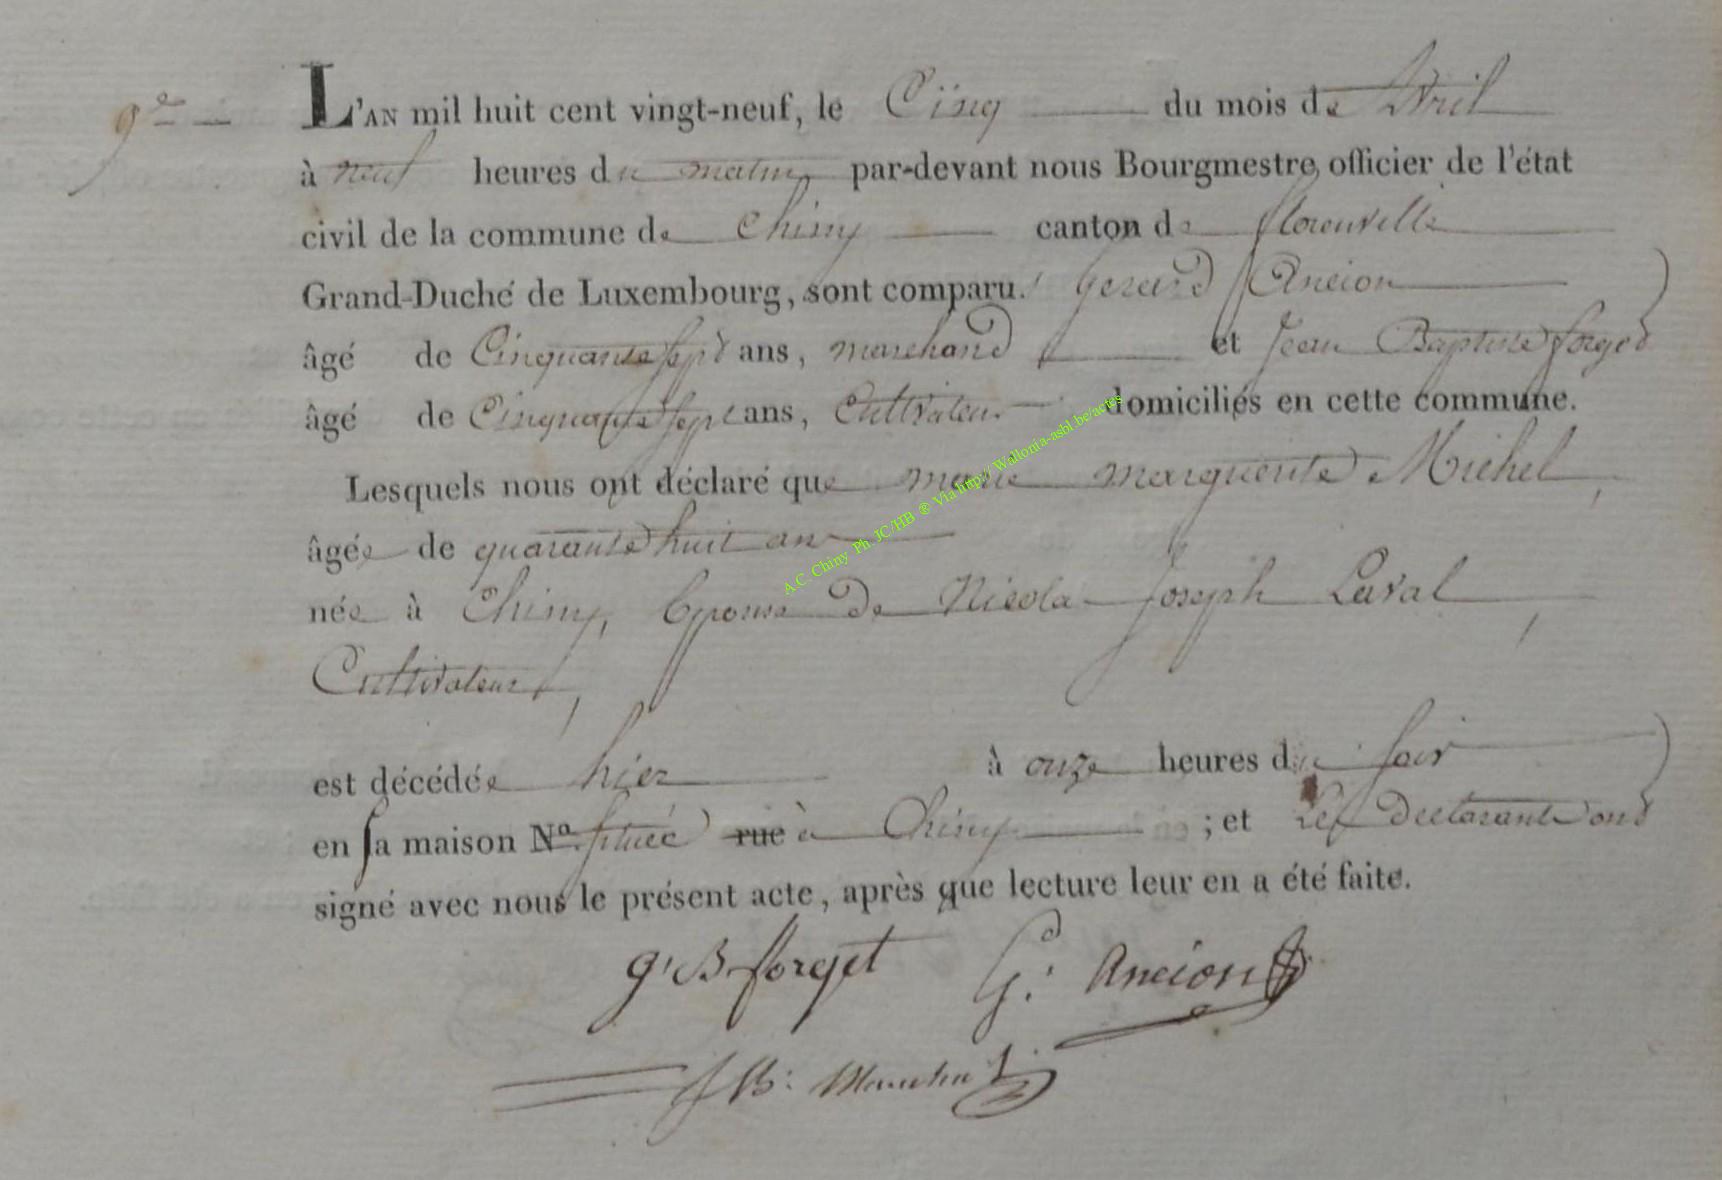 9.e L'AN mil huit cent vingt-neuf, le Cinq du mois de Avril
à neuf heures du matin, par-devant nous Bourgmestre, officier de l'état
civil de la commune de Chiny canton de florenville
Grand-Duché de Luxembourg, sont comparu. Gerard Ancion
âgé de Cinquante sept ans, marchand et Jean Baptiste forget
âgé de Cinquante sept ans, Cultivateur domiciliés en cette commune.
Lesquels nous ont déclaré que marie marguerite Michel,
âgée de quarante huit ans
née à Chiny, Epouse de Nicolas Joseph Laval,
Cultivateur,
est décédée hier à onze heures du soir
en sa maison No. située rue à Chiny ; et Les declarants ont
signé avec nous le présent acte, après que lecture leur en a été faite.
g. B forget G.d Ancion
J B:
A.C. Chiny Ph. JC/HB ® Via http:// Wallonia-asbl.be/actes